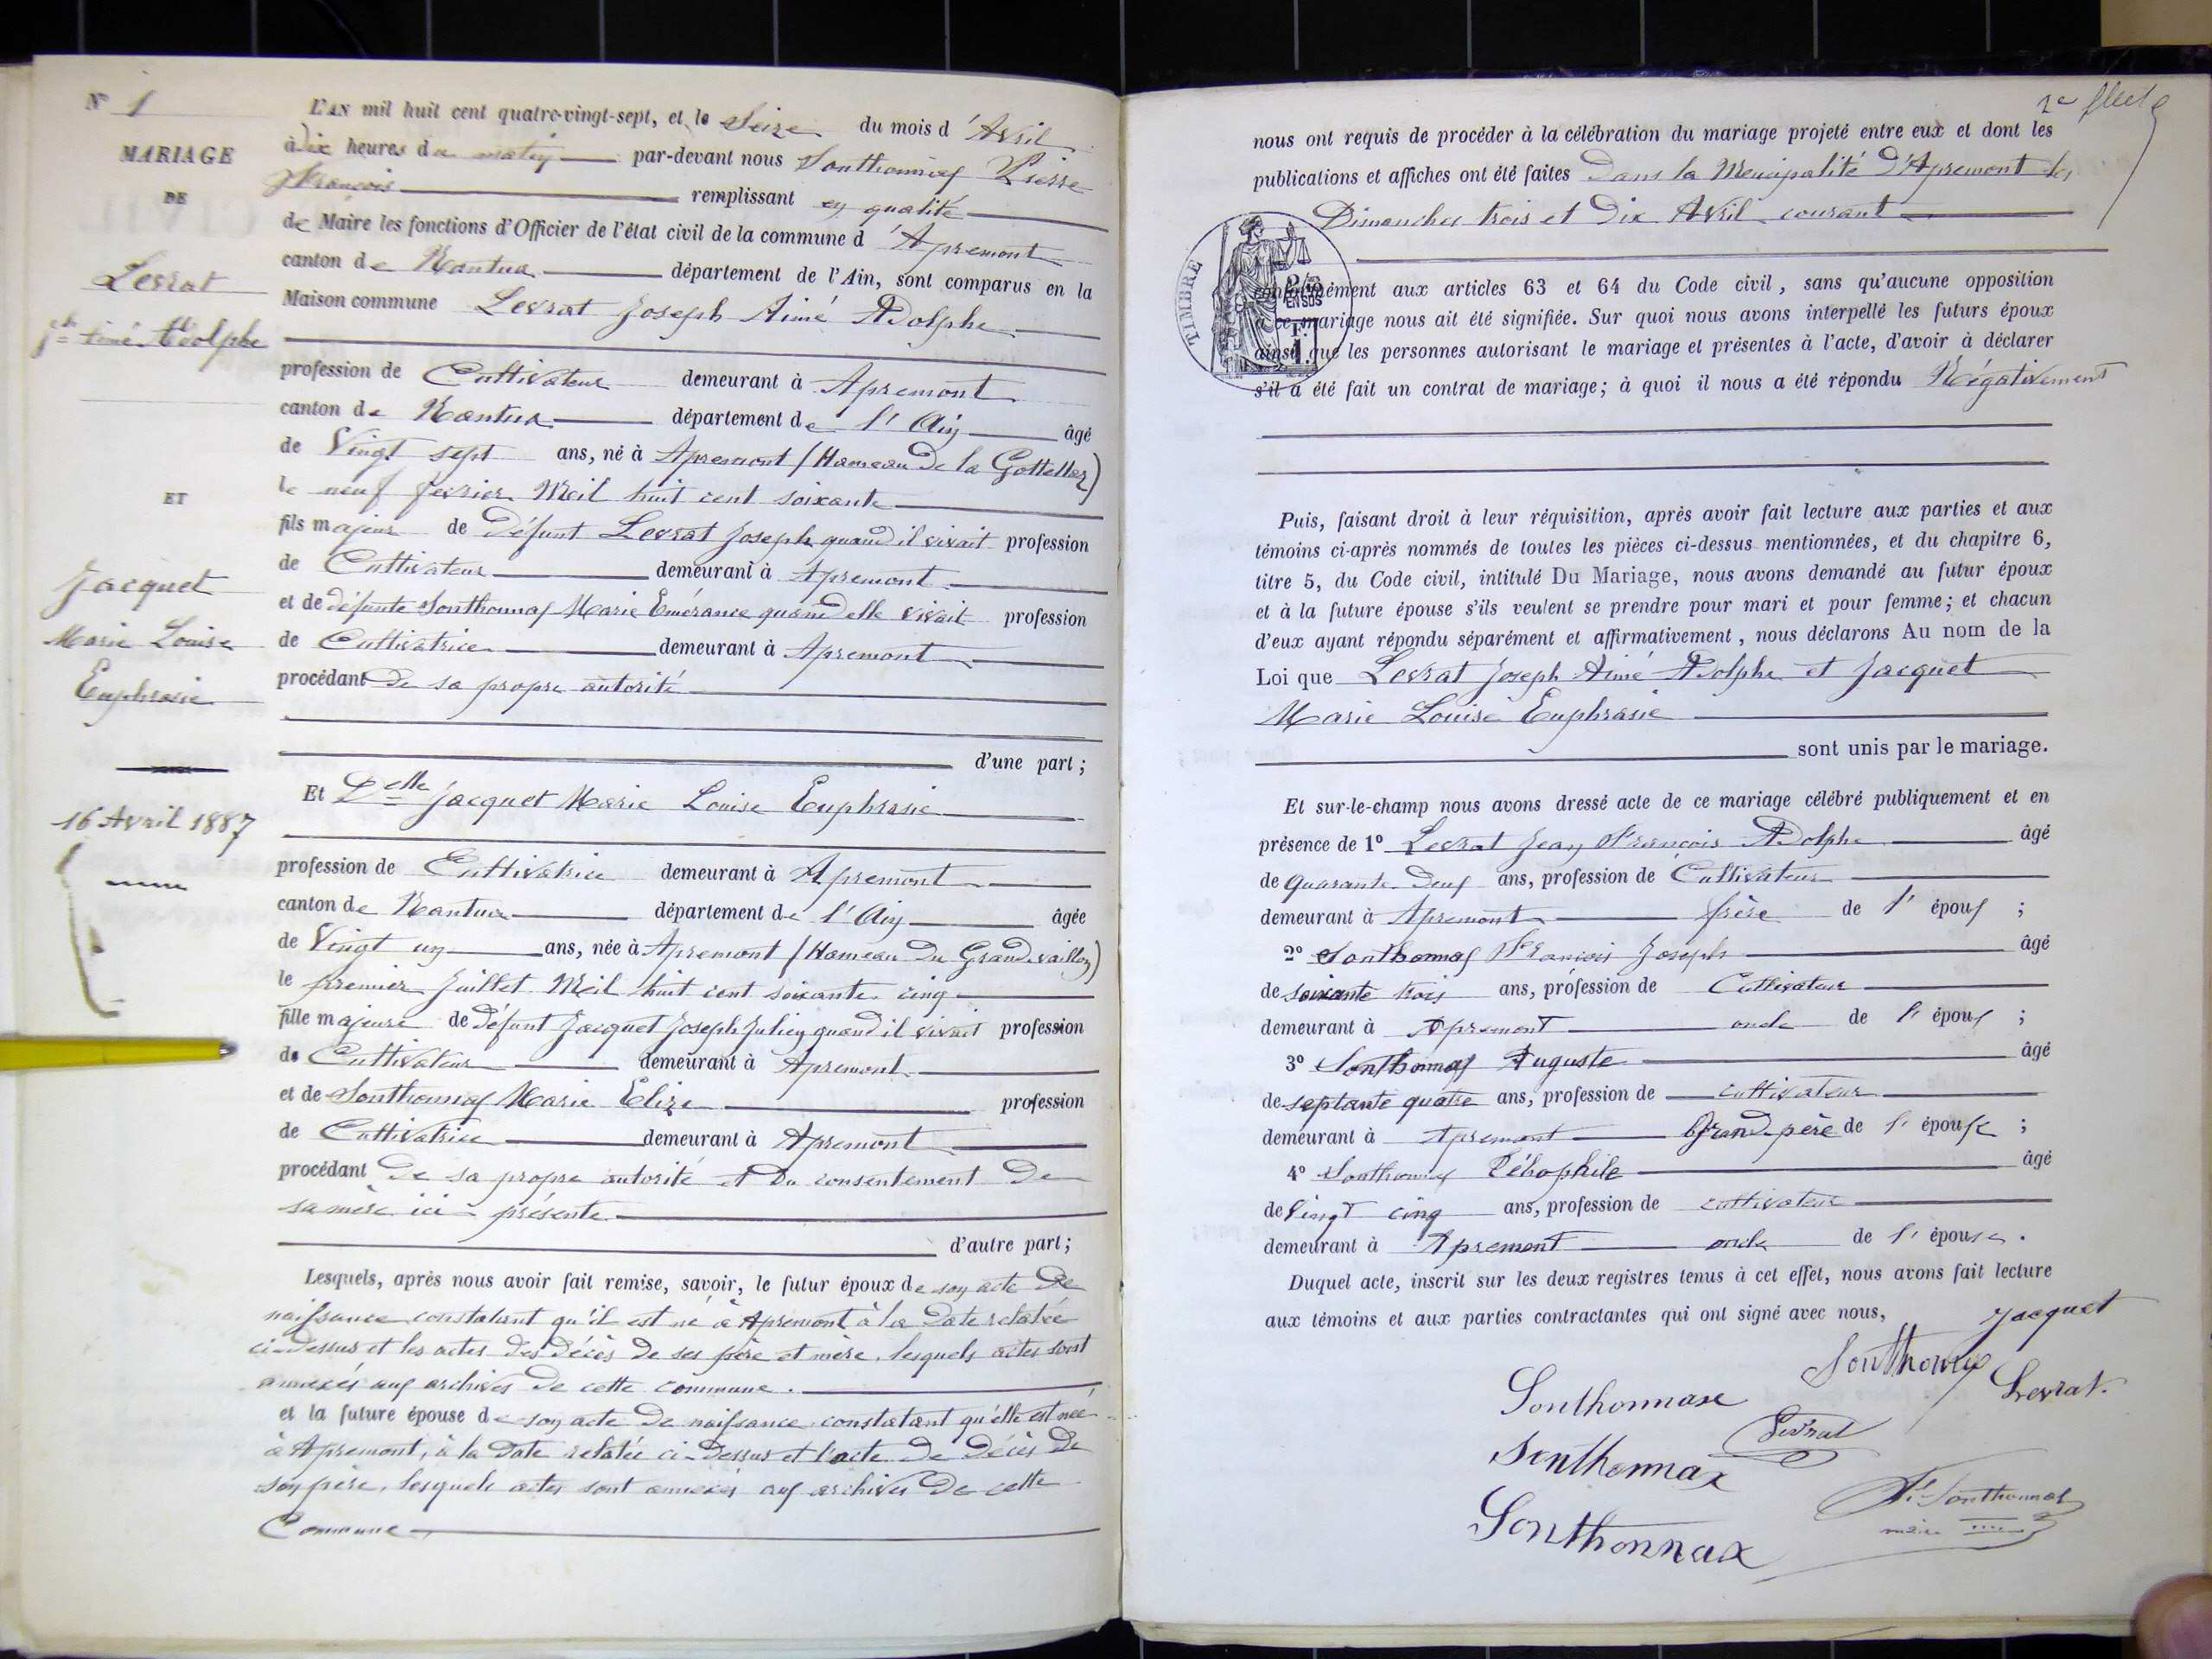 N° 1
MARIAGE
DE
Levrat
Jph Aimé Adolphe
ET
Jacquet
Marie Louise
Euphrasie
16 Avril 1887
L'AN mil huit cent quatre-vingt-sept, et le Seize du mois d'Avril
à Dix heures du matin par-devant nous Sonthonnax Pierre
François remplissant en qualité
de Maire les fonctions d'Officier de l'état civil de la commune d'Apremont
canton de Nantua département de l'Ain, sont comparus en la
Maison commune Levrat Joseph Aimé Adolphe
profession de Cultivateur demeurant à Apremont
canton de Nantua département de l'Ain âgé
de Vingt sept ans, né à Apremont (Hameau de la Gottettaz)
le neuf février Mil huit cent soixante
fils majeur de défunt Levrat Joseph quand il vivait profession
de Cultivateur demeurant à Apremont
et de défunte Sonthonnax Marie Emérance quand elle vivait profession
de Cultivatrice demeurant à Apremont
procédant de sa propre autorité
d'une part;
Et Delle Jacquet Marie Louise Euphrasie
profession de Cultivatrice demeurant à Apremont
canton de Nantua département de l'Ain âgée
de Vingt un ans, née à Apremont (Hameau du Grand-vaillon)
le premier Juillet Mil huit cent soixante cinq
fille majeure de défunt Jacquet Joseph Julien quand il vivait profession
de Cultivateur demeurant à Apremont
et de Sonthonnax Marie Elize profession
de Cultivatrice demeurant à Apremont
procédant de sa propre autorité et du consentement de
sa mère ici présente
d'autre part;
Lesquels, après nous avoir fait remise, savoir, le futur époux de son acte de
naissance constatant qu'il est né à Apremont à la date relatée
ci-dessus et les actes des décès de ses père et mère, lesquels actes sont
annexés aux archives de cette commune.
et la future épouse de son acte de naissance constatant qu'elle est née
à Apremont, à la date relatée ci-dessus et l'acte de décès de
son père, lesquels actes sont annexés aux archives de cette
Commune
2e
nous ont requis de procéder à la célébration du mariage projeté entre eux et dont les
publications et affiches ont été faites Dans la Municipalité d'Apremont les
Dimanches trois et dix Avril courant
TIMBRE
2/10 EN SUS
conformément aux articles 63 et 64 du Code civil, sans qu'aucune opposition
à ce mariage nous ait été signifiée. Sur quoi nous avons interpellé les futurs époux
ainsi que les personnes autorisant le mariage et présentes à l'acte, d'avoir à déclarer
s'il a été fait un contrat de mariage; à quoi il nous a été répondu Négativement
Puis, faisant droit à leur réquisition, après avoir fait lecture aux parties et aux
témoins ci-après nommés de toutes les pièces ci-dessus mentionnées, et du chapitre 6,
titre 5, du Code civil, intitulé Du Mariage, nous avons demandé au futur époux
et à la future épouse s'ils veulent se prendre pour mari et pour femme; et chacun
d'eux ayant répondu séparément et affirmativement, nous déclarons Au nom de la
Loi que Levrat Joseph Aimé Adolphe et Jacquet
Marie Louise Euphrasie
sont unis par le mariage.
Et sur-le-champ nous avons dressé acte de ce mariage célébré publiquement et en
présence de 1° Levrat Jean François Adolphe âgé
de quarante deux ans, profession de Cultivateur
demeurant à Apremont frère de l'époux ;
2° Sonthonnax François Joseph âgé
de soixante trois ans, profession de Cultivateur
demeurant à Apremont oncle de l'époux ;
3° Sonthonnax Auguste âgé
de septante quatre ans, profession de cultivateur
demeurant à Apremont Grand-père de l'épouse ;
4° Sonthonnax Téhophile âgé
de Vingt cinq ans, profession de cultivateur
demeurant à Apremont oncle de l'épouse.
Duquel acte, inscrit sur les deux registres tenus à cet effet, nous avons fait lecture
aux témoins et aux parties contractantes qui ont signé avec nous,
Jacquet
Sonthonax
Sonthonnaxe
Levrat.
Levrat
Sonthonnax
Sonthonnax
maire